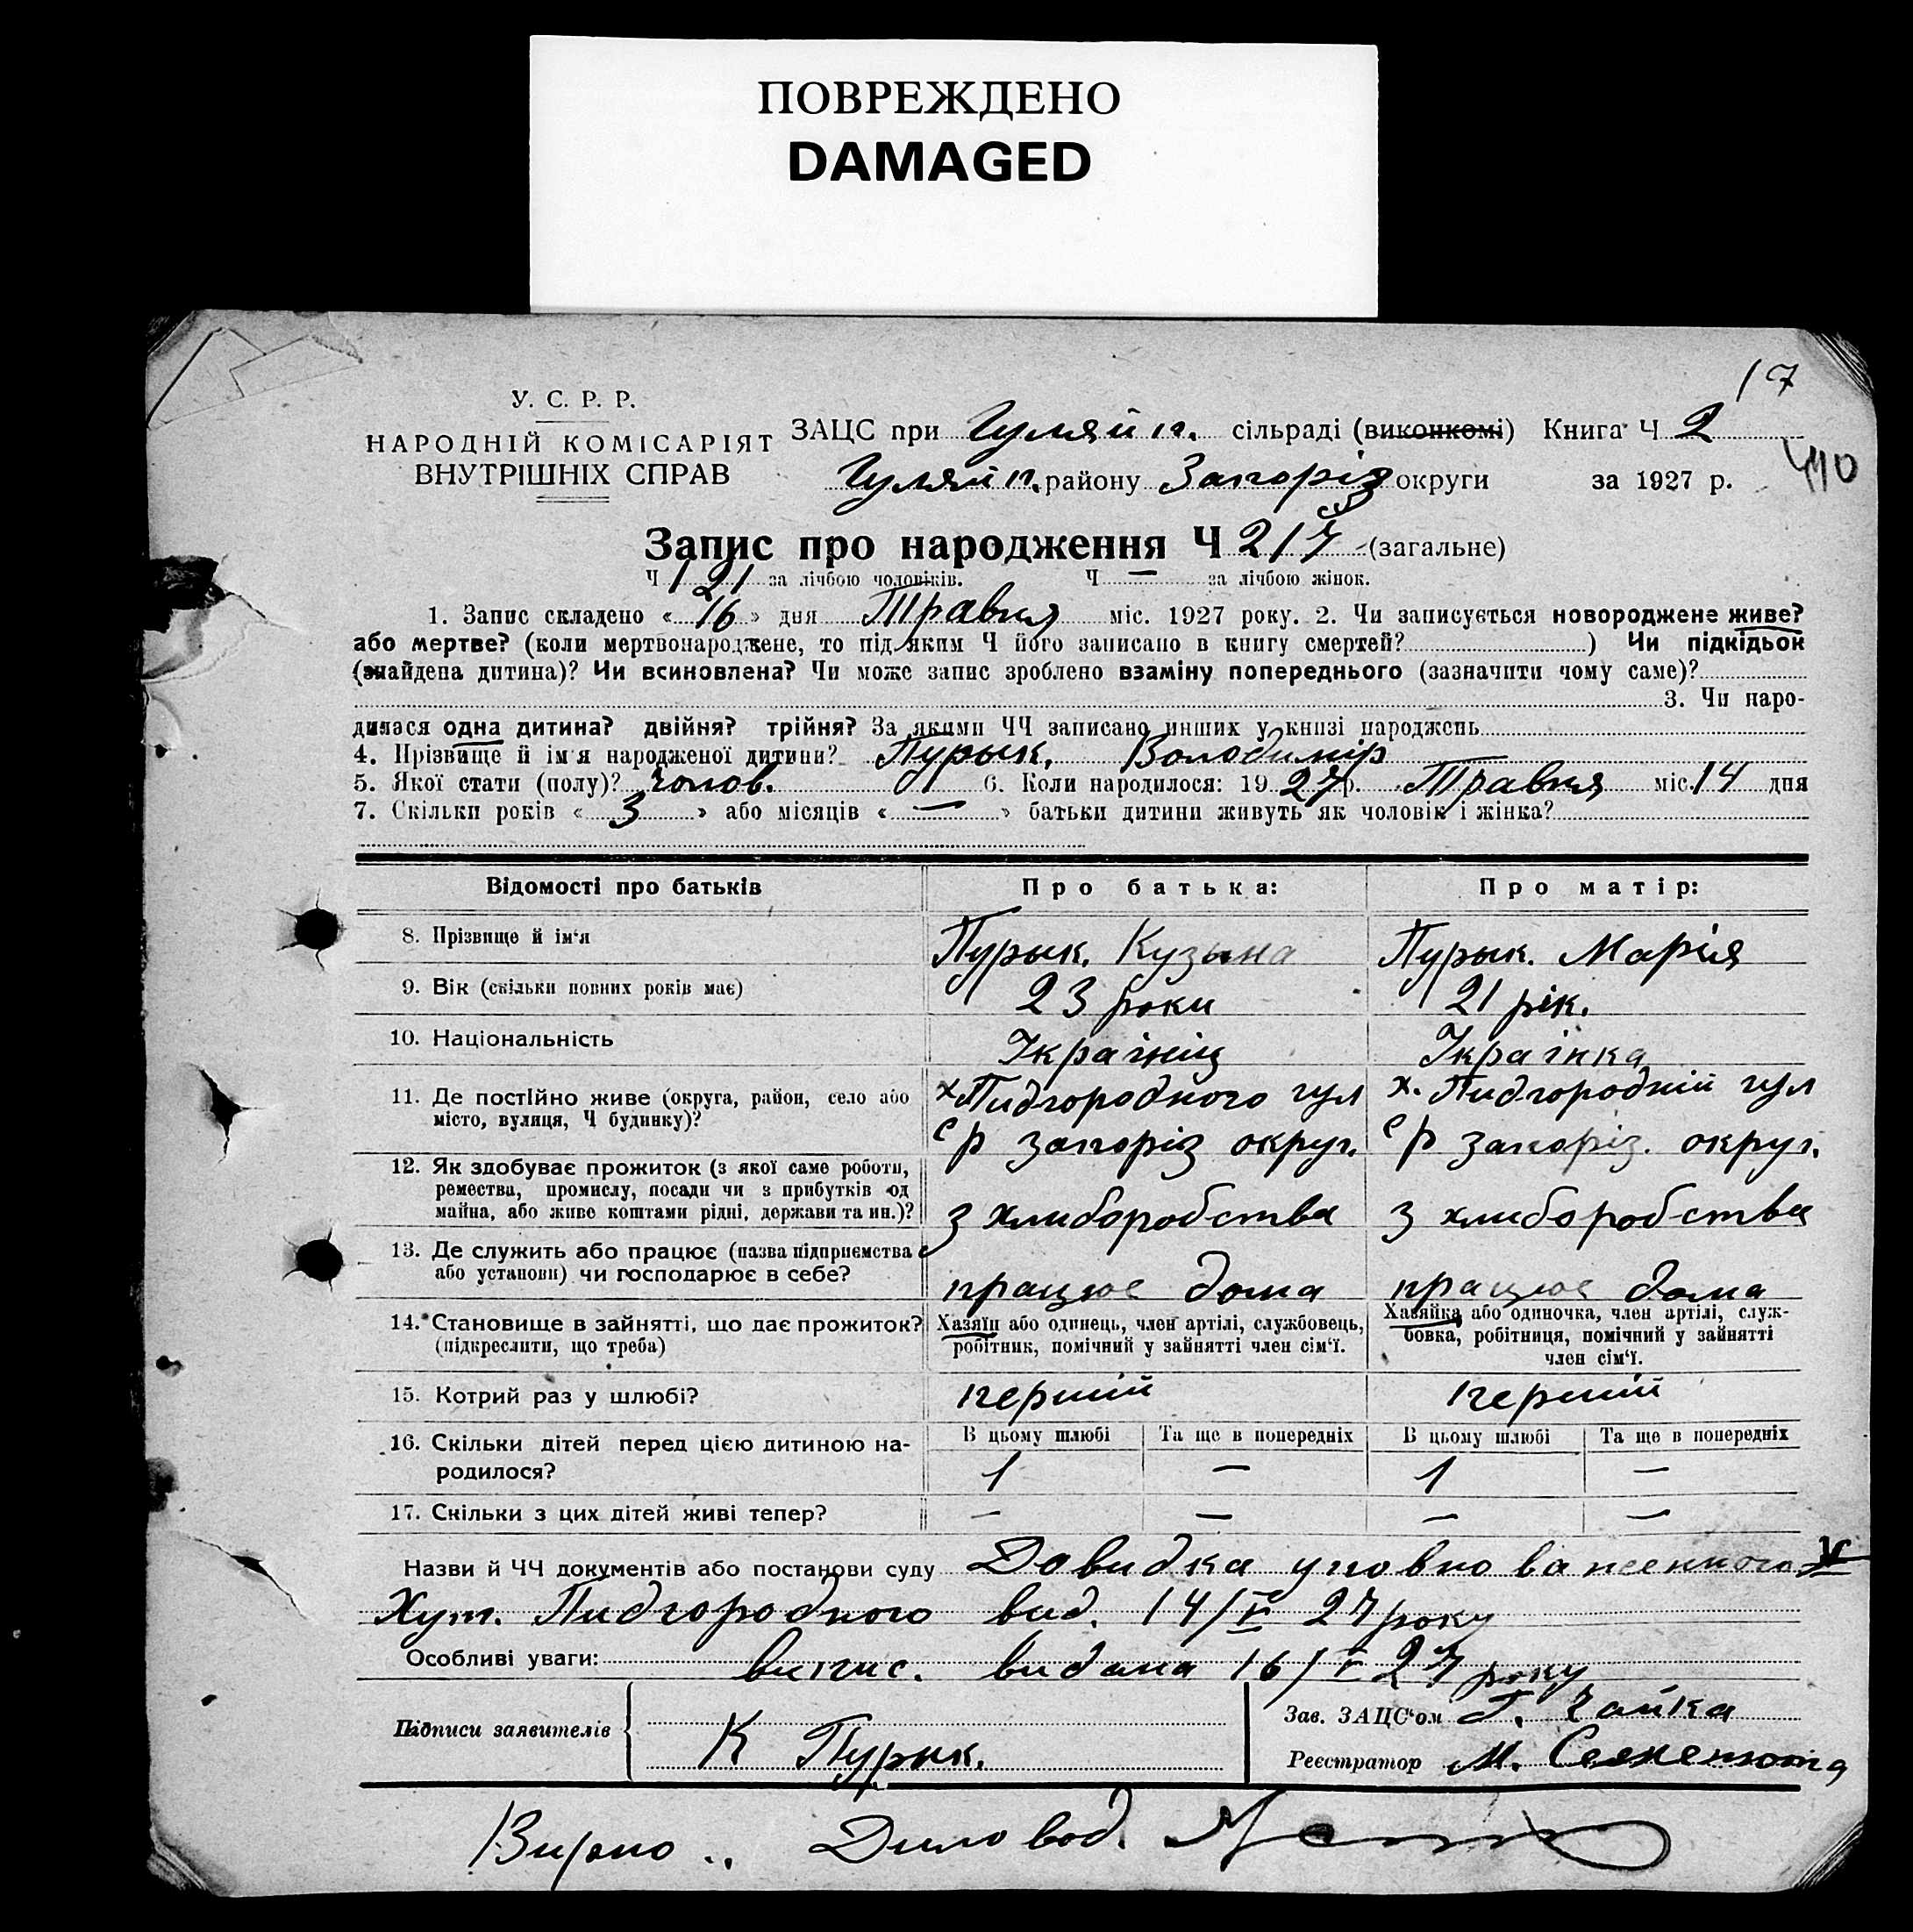 ПОВРЕЖДЕНО
DAMAGED
17
У. С. Р. Р.
НАРОДНІЙ КОМІСАРІЯТ
ВНУТРІШНІХ СПРАВ
ЗАЦС при Гуляй п. сільраді (виконкомі) Книга Ч 2
Гуляй п. району Запоріз округи за 1927 р.
440
Запис про народження Ч 217 (загальне)
Ч 121 за лічбою чоловіків. Ч — за лічбою жінок.
1. Запис складено « 16 » дня Травня міс. 1927 року. 2. Чи записується новороджене живе?
або мертве? (коли мертвонароджене, то під яким Ч його записано в книгу смертей? ) Чи підкідьок
(знайдена дитина)? Чи всиновлена? Чи може запис зроблено взаміну попереднього (зазначити чому саме)?
3. Чи наро-
дилася одна дитина? двійня? трійня? За якими ЧЧ записано инших у книзі народжень
4. Прізвище й ім'я народженої дитини? Пурык, Володимір
5. Якої стати (полу)? чолов. 6. Коли народилося: 1927 р. Травня міс. 14 дня
7. Скільки років « 3 » або місяців « — » батьки дитини живуть як чоловік і жінка?
Відомості про батьків Про батька: Про матір:
8. Прізвище й ім'я Пурык. Кузьма Пурык. Марія
9. Вік (скільки повних років має) 23 роки 21 рік.
10. Національність Украінец Украінка
11. Де постійно живе (округа, район, село або х. Пидгородного гул х. Пидгородній гул
місто, вулиця, Ч будинку)? р запоріз округ. р запоріз. округ.
12. Як здобуває прожиток (з якої саме роботи,
ремества, промислу, посади чи з прибутків од
майна, або живе коштами рідні, держави та ин.)? З хлиборобства З хлиборобства
13. Де служить або працює (назва підприємства
або установи) чи господарює в себе? працює дома працює дома
14. Становище в зайнятті, що дає прожиток? Хазяїн або одинець, член артілі, службовець, Хазяйка або одиночка, член артілі, служ-
(підкреслити, що треба) робітник, помічний у зайнятті член сім'ї. бовка, робітниця, помічний у зайнятті
член сім'ї.
15. Котрий раз у шлюбі? перший перший
16. Скільки дітей перед цією дитиною на- В цьому шлюбі Та ще в попередніх В цьому шлюбі Та ще в попередніх
родилося? 1 — 1 —
17. Скільки з цих дітей живі тепер? — — — —
Назви й ЧЧ документів або постанови суду Довидка уповноваженного
Хут. Пидгородного вид. 14/V 27 року
Особливі уваги: випис. видана 16/V 27 року
Підписи заявителів К Пурык.
Зав. ЗАЦС'ом Г. Чайка
Реєстратор М.
Вирно .. Диловод.